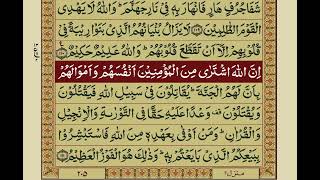 شَفَا جُرُفٍ هَارٍ فَانْهَارَ بِهٖ فِيْ نَارِ جَهَنَّمَ ؕ وَاللّٰهُ لَا يَهْدِي
الْقَوْمَ الظّٰلِمِيْنَ ۝۱۰۹ لَا يَزَالُ بُنْيَانُهُمُ الَّذِيْ بَنَوْا رِيْبَةً فِيْ
قُلُوْبِهِمْ اِلَّاۤ اَنْ تَقَطَّعَ قُلُوْبُهُمْ ؕ وَاللّٰهُ عَلِيْمٌ حَكِيْمٌ ۝۱۱۰
اِنَّ اللّٰهَ اشْتَرٰى مِنَ الْمُؤْمِنِيْنَ اَنْفُسَهُمْ وَاَمْوَالَهُمْ
بِاَنَّ لَهُمُ الْجَنَّةَ ؕ يُقَاتِلُوْنَ فِيْ سَبِيْلِ اللّٰهِ فَيَقْتُلُوْنَ
وَيُقْتَلُوْنَ ۫ وَعْدًا عَلَيْهِ حَقًّا فِي التَّوْرٰىةِ وَالْاِنْجِيْلِ
وَالْقُرْاٰنِ ؕ وَمَنْ اَوْفٰى بِعَهْدِهٖ مِنَ اللّٰهِ فَاسْتَبْشِرُوْا
بِبَيْعِكُمُ الَّذِيْ بَايَعْتُمْ بِهٖ ؕ وَذٰلِكَ هُوَ الْفَوْزُ الْعَظِيْمُ ۝۱۱۱
۲۰۵ منزل ۲